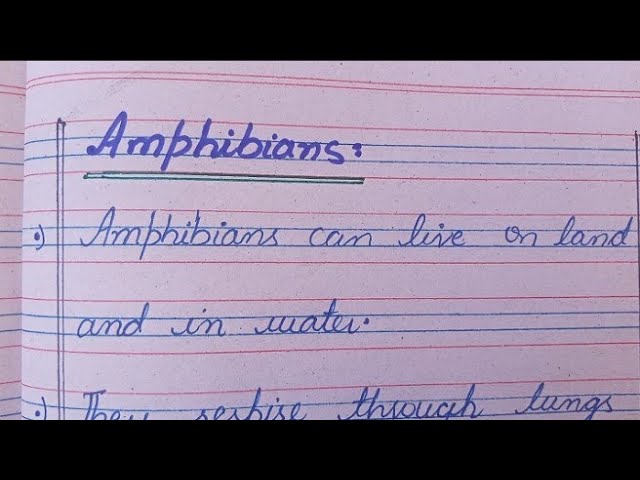 Amphibians:
•) Amphibians can live on land
and in water.
•) They respire through lungs